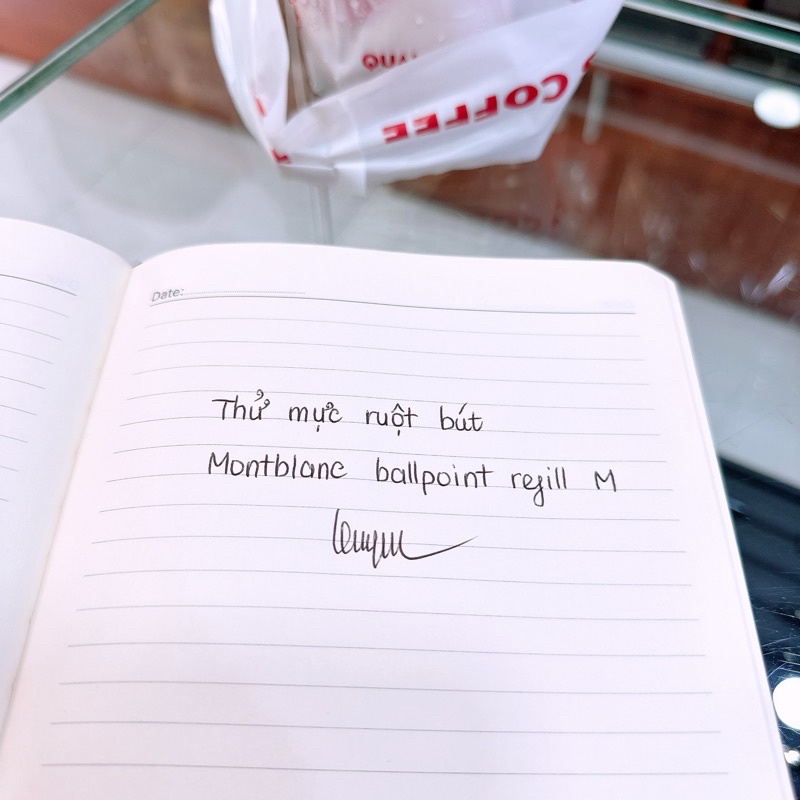 COFFEE
Date:
Thử mực ruột bút
Montblanc ballpoint refill M